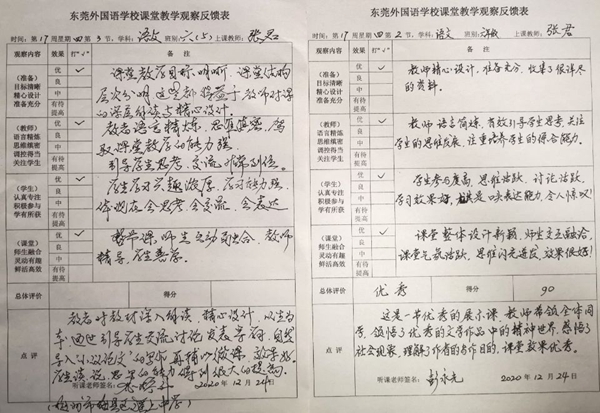 东莞外国语学校课堂教学观察反馈表
时间：第17周星期四第3节，学科：语文 班 六（5）上课教师：张君
观察内容 效果 打“√” 备 注
（准备） 优 √
目标清晰 良
精心设计 中
准备充分 有待提高
课堂教学目标明晰，课堂结构
层次分明，这
的深度解读与精心设计。
（教师） 优 √
语言精炼 良
思维缜密 中
调控得当 有待提高
关注学生
教者语言精炼，思维缜密，驾
驭课堂教学的能力强，
引导学生思考、交流
（学生） 优 √
认真专注 良
积极参与 中
学有所获 有待提高
学生学习兴趣浓厚，学习能力强，
体现在会思考，会交流，会表达
（课堂） 优 √
师生融合 良
灵动有趣 中
鲜活高效 有待提高
整节课，师生互动融合，教师
辅导，学生
总体评价 得分
点 评
教者对教材深入解读，精心设计，以生为
本，通过引导学生交流讨论
导入小议论文的写作，再辅以微课，
听课老师签名：
2020年12月24日
东莞外国语学校课堂教学观察反馈表
时间：第17周星期四第2节，学科：语文 上课教师：张君
观察内容 效果 打“√” 备 注
（准备） 优 √
目标清晰 良
精心设计 中
准备充分 有待提高
教师精心设计，准备充分，收集了很详尽
的资料。
（教师） 优 √
语言精炼 良
思维缜密 中
调控得当 有待提高
关注学生
教师语言简炼，有效引导学生思考，关注
学生的思维发展，注重培养学生的综合能力。
（学生） 优 √
认真专注 良
积极参与 中
学有所获 有待提高
学生参与度高，思维活跃，讨论活跃，
学习效果好，尤其是口头表达能力，令人惊叹！
（课堂） 优 √
师生融合 良
灵动有趣 中
鲜活高效 有待提高
课堂整体设计新颖，师生交互融洽，
课堂气氛活跃，思维闪光迸发，效果很好！
总体评价 优秀 得分 90
点 评
这是一节优秀的展示课，教师带领全体同
学，领悟了优秀的文学作品中的精神世界，感悟了
社会现象，理解了作者的写作目的，课堂效果优秀。
听课老师签名：彭永先
2020年12月24日